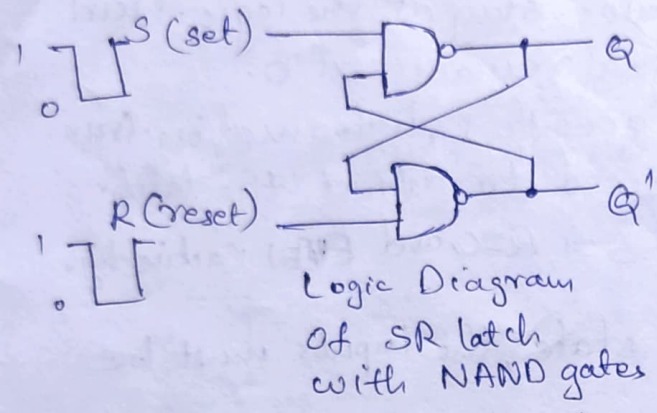 1
S (set)
Q
0
R (reset)
Q'
1
0
Logic Diagram
Of SR latch
with NAND gates